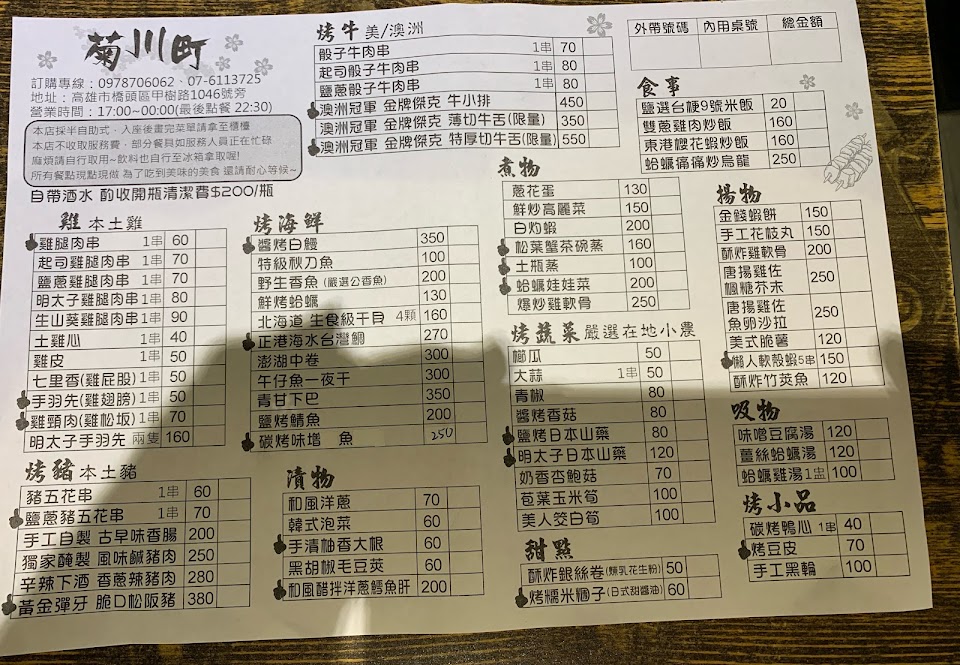 菊川町
訂購專線：0978706062、07-6113725
地址：高雄市橋頭區甲樹路1046號旁
營業時間：17:00~00:00(最後點餐 22:30)
本店採半自助式，入座後畫完菜單請拿至櫃檯
本店不收取服務費，部分餐具如服務人員正在忙碌
麻煩請自行取用~飲料也自行至冰箱拿取喔!
所有餐點現點現做 為了吃到美味的美食 還請耐心等候~
自帶酒水 酌收開瓶清潔費$200/瓶
雞 本土雞
雞腿肉串 1串 60
起司雞腿肉串 1串 70
鹽蔥雞腿肉串 1串 70
明太子雞腿肉串 1串 80
生山葵雞腿肉串 1串 90
土雞心 1串 40
雞皮 1串 50
七里香(雞屁股) 1串 50
手羽先(雞翅膀) 1串 50
雞頸肉(雞松坂) 1串 70
明太子手羽先 兩隻 160
烤豬 本土豬
豬五花串 1串 60
鹽蔥豬五花串 1串 70
手工自製 古早味香腸 200
獨家醃製 風味鹹豬肉 250
辛辣下酒 香蔥辣豬肉 280
黃金彈牙 脆口松阪豬 380
烤牛 美/澳洲
骰子牛肉串 1串 70
起司骰子牛肉串 1串 80
鹽蔥骰子牛肉串 1串 80
澳洲冠軍 金牌傑克 牛小排 450
澳洲冠軍 金牌傑克 薄切牛舌(限量) 350
澳洲冠軍 金牌傑克 特厚切牛舌(限量) 550
烤海鮮
醬烤白鰻 350
特級秋刀魚 100
野生香魚(嚴選公香魚) 200
鮮烤蛤蠣 130
北海道 生食級干貝 4顆 160
正港海水台灣鯛 270
澎湖中卷 300
午仔魚一夜干 300
青甘下巴 350
鹽烤鯖魚 200
碳烤味增 魚 250
漬物
和風洋蔥 70
韓式泡菜 60
手漬柚香大根 60
黑胡椒毛豆莢 60
和風醋拌洋蔥鱈魚肝 200
煮物
蔥花蛋 130
鮮炒高麗菜 150
白灼蝦 200
松葉蟹茶碗蒸 160
土瓶蒸 100
蛤蠣娃娃菜 200
爆炒雞軟骨 250
烤蔬菜 嚴選在地小農
櫛瓜 50
大蒜 1串 50
青椒 80
醬烤香菇 80
鹽烤日本山藥 80
明太子日本山藥 120
奶香杏鮑菇 70
苞葉玉米筍 100
美人筊白筍 100
甜點
酥炸銀絲卷(煉乳花生粉) 50
烤糯米糰子(日式甜醬油) 60
外帶號碼 內用桌號 總金額
食事
鹽選台梗9號米飯 20
雙蔥雞肉炒飯 160
東港櫻花蝦炒飯 160
蛤蠣痛痛炒烏龍 250
揚物
金錢蝦餅 150
手工花枝丸 150
酥炸雞軟骨 200
唐揚雞佐
楓糖芥末 250
唐揚雞佐
魚卵沙拉 250
美式脆薯 120
懶人軟殼蝦 5串 150
酥炸竹莢魚 120
吸物
味噌豆腐湯 120
薑絲蛤蠣湯 120
蛤蠣雞湯 1盅 100
烤小品
碳烤鴨心 1串 40
烤豆皮 70
手工黑輪 100